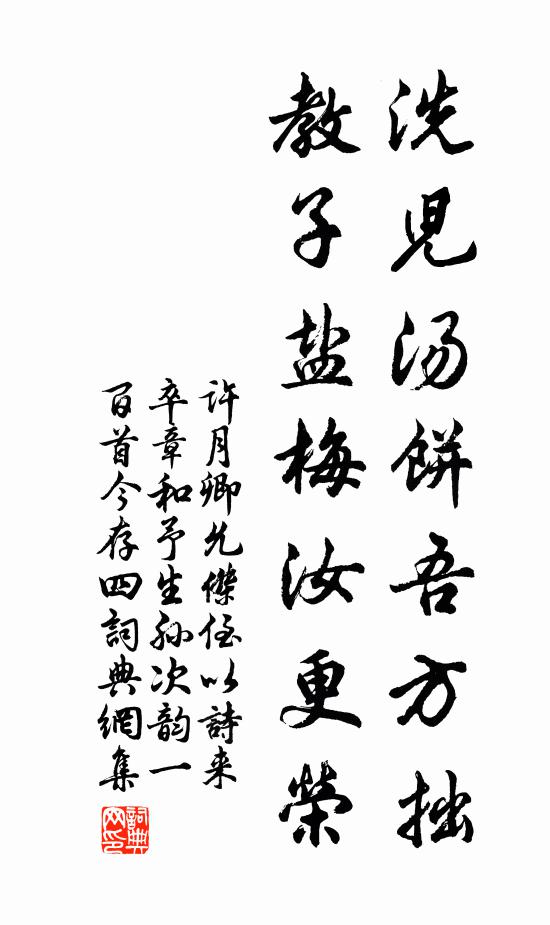 洗兒湯餅吾方拙
教子盐梅汝更榮
許月卿允傑侄以詩来
卒章和予生孙次韵一
百首今存四詞典網集
詞典网印